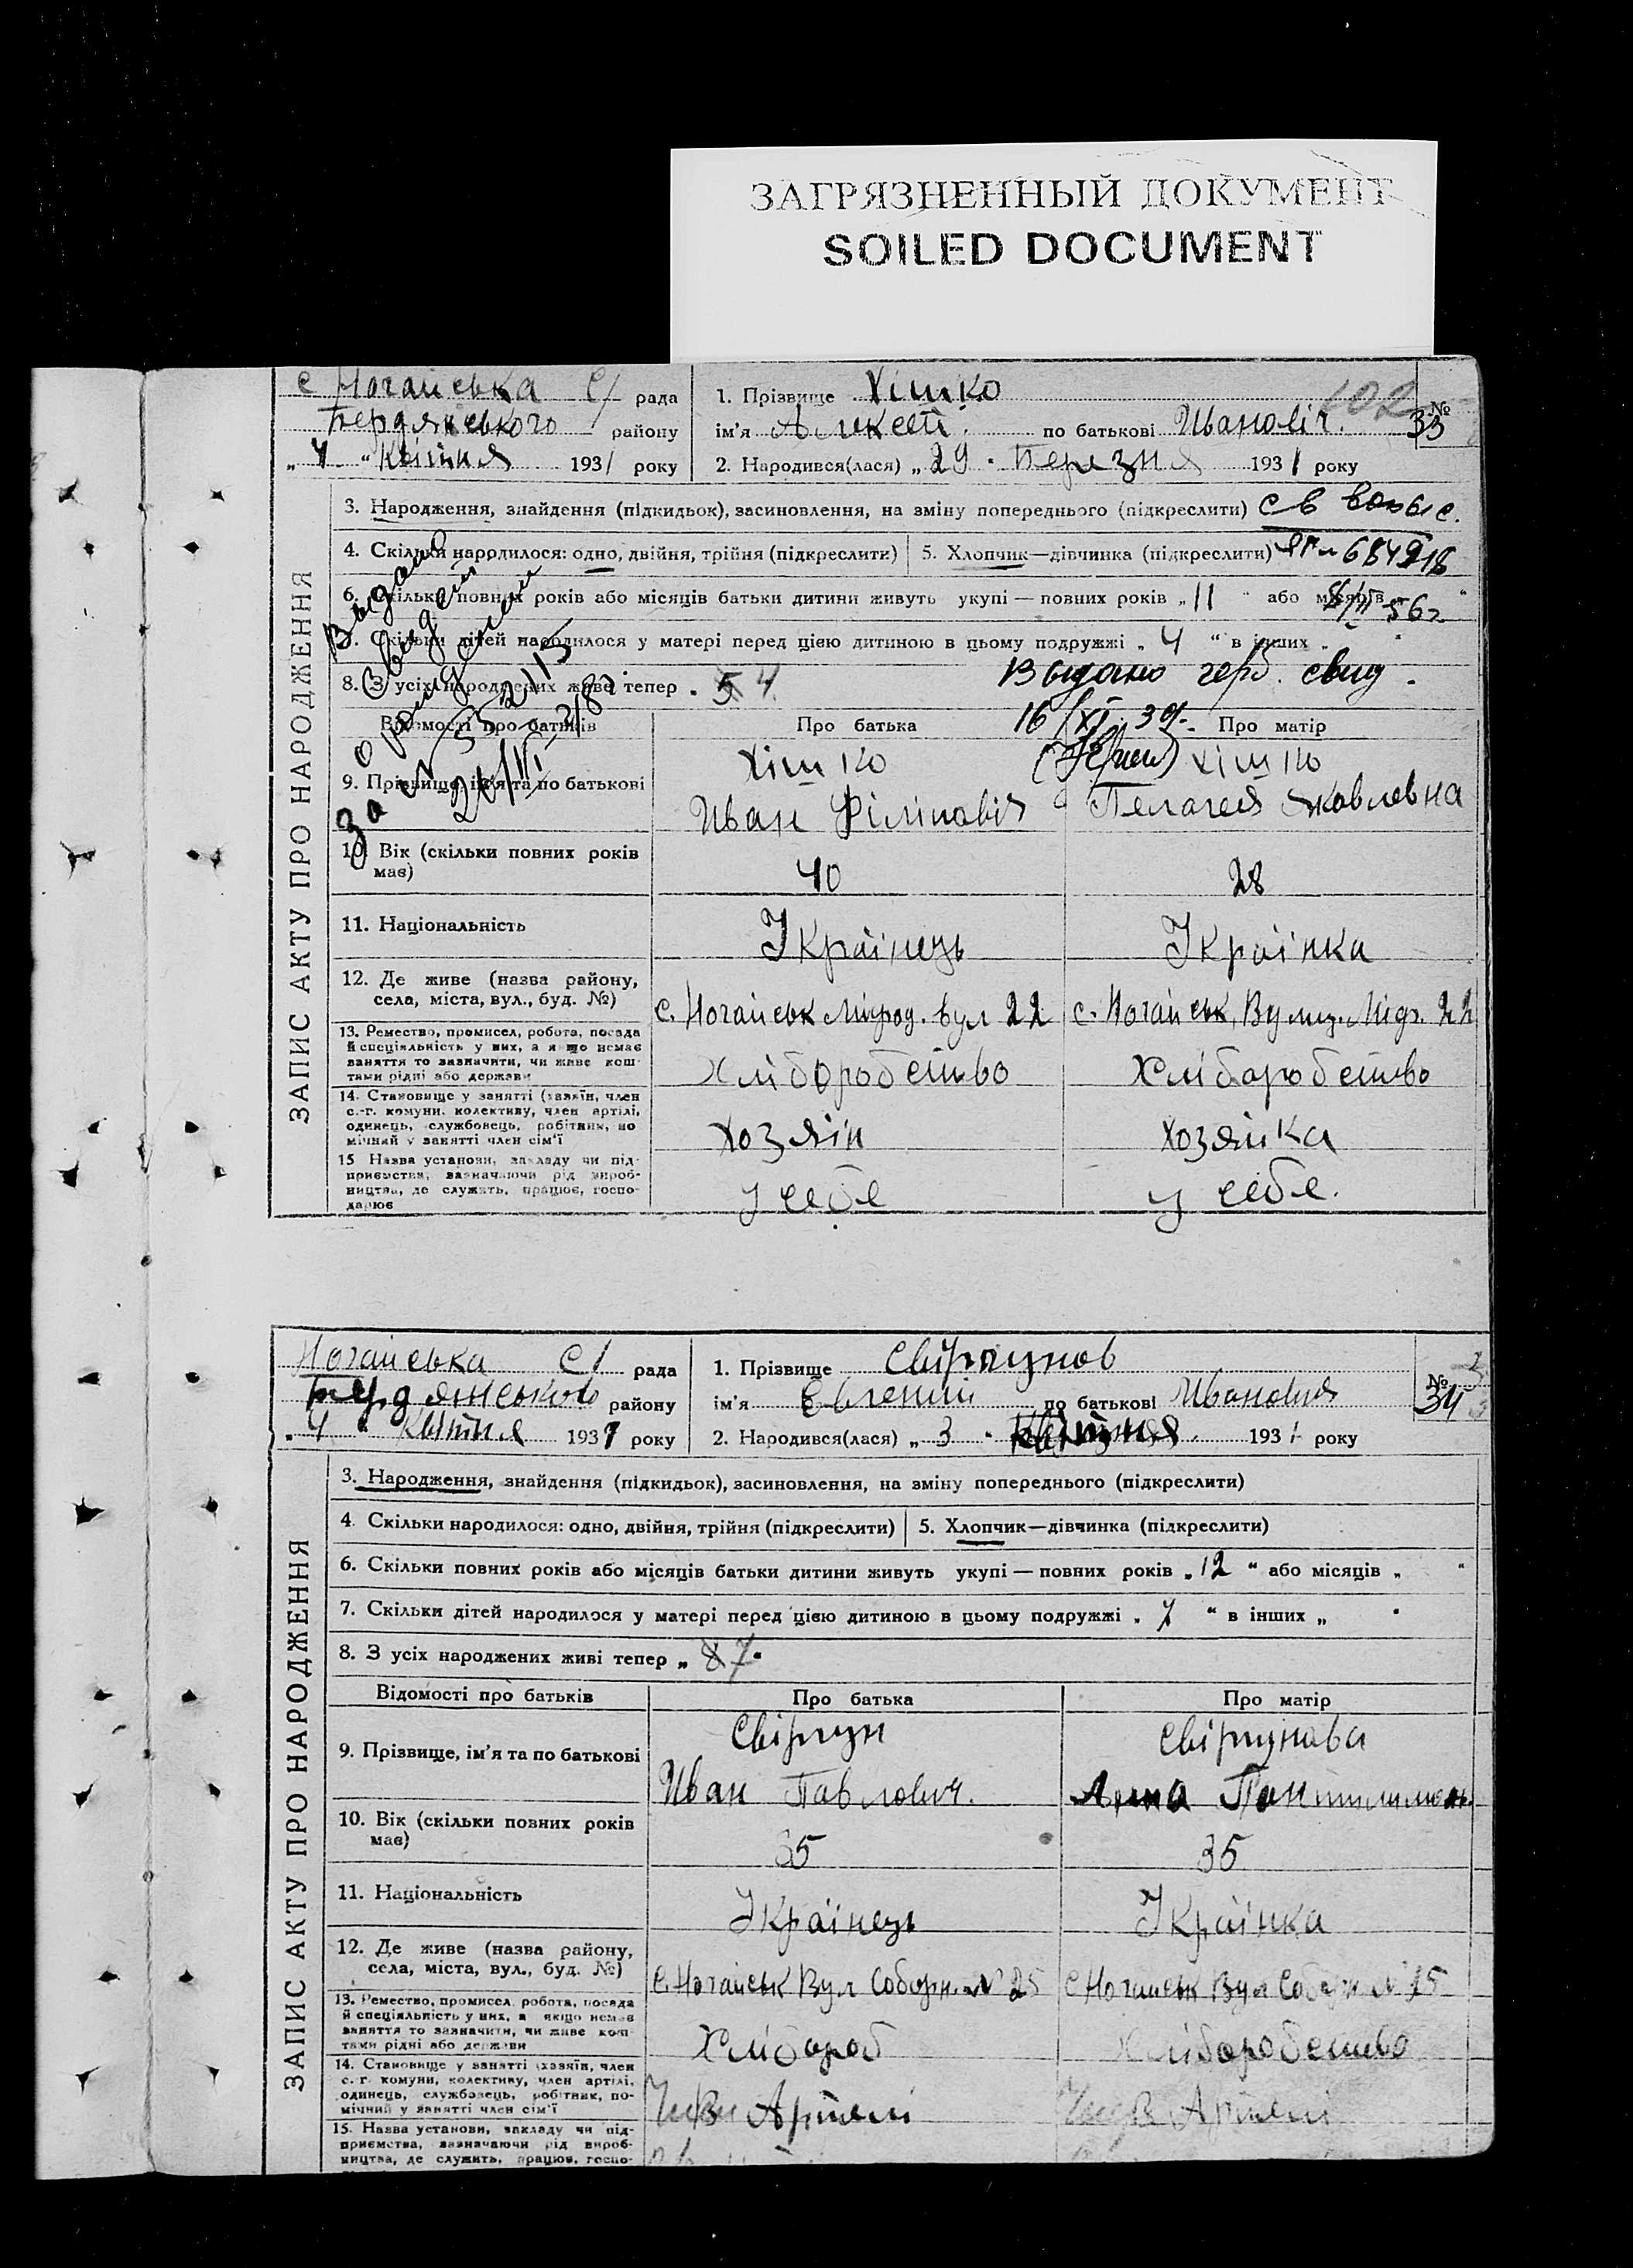 ЗАГРЯЗНЕННЫЙ ДОКУМЕНТ
SOILED DOCUMENT
с Ногайська С/ рада
Бердянського району
„4" Квітня 1931 року
1. Прізвище Хімко
ім'я Алексей по батькові Иванович.
№ 33
102
2. Народився(лася) „29" Березня 1931 року
ЗАПИС АКТУ ПРО НАРОДЖЕННЯ
3. Народження, знайдення (підкидьок), засиновлення, на зміну попереднього (підкреслити)
4. Скільки народилося: одно, двійня, трійня (підкреслити) 5. Хлопчик—дівчинка (підкреслити) 684918
6. Скільки повних років або місяців батьки дитини живуть укупі — повних років „11" або місяців 56г
7. Скільки дітей народилося у матері перед цією дитиною в цьому подружжі „4" в інших „ "
Выдано герб. свид.
8. З усіх народжених живі тепер „5 4
16/XI 39.
Выдано
Свидет
о рожден
Відомості про батьків Про батька Про матір
9. Прізвище, ім'я та по батькові
Хімко
Иван Філіповіч
Хімко
Пелагея Яковлевна
10. Вік (скільки повних років має) 40 28
11. Національність Українець Українка
12. Де живе (назва району, села, міста, вул., буд. №)
с. Ногайськ вул 22 с. Ногайськ, 22
13. Ремество, промисел, робота, посада й спеціяльність у них, а якщо немає заняття то зазначити, чи живе коштами рідні або держави
Хліборобство Хліборобство
14. Становище у занятті (хазяїн, член с.-г. комуни, колективу, член артілі, одинець, службовець, робітник, помічний у занятті член сім'ї
хозяін хозяйка
15. Назва установи, закладу чи підприємства, зазначаючи рід виробництва, де служить, працює, господарює
у себе у себе.
Ногайська С/ рада
Бердянського району
„4" Квітня 1931 року
1. Прізвище Свіргунов
ім'я Евгений по батькові Иванович
№ 34
2. Народився(лася) „3" Квітня 1931 року
ЗАПИС АКТУ ПРО НАРОДЖЕННЯ
3. Народження, знайдення (підкидьок), засиновлення, на зміну попереднього (підкреслити)
4. Скільки народилося: одно, двійня, трійня (підкреслити) 5. Хлопчик—дівчинка (підкреслити)
6. Скільки повних років або місяців батьки дитини живуть укупі — повних років „12" або місяців „ "
7. Скільки дітей народилося у матері перед цією дитиною в цьому подружжі „7" в інших „ "
8. З усіх народжених живі тепер „8 7"
Відомості про батьків Про батька Про матір
9. Прізвище, ім'я та по батькові
Свіргун
Иван Павлович.
Свіргунова
Анна
10. Вік (скільки повних років має) 35 35
11. Національність Українець Українка
12. Де живе (назва району, села, міста, вул., буд. №)
с. Ногайськ Вул Соборн. № 25 с Ногайськ Вул Соборн № 25
13. Ремество, промисел, робота, посада й спеціяльність у них, а якщо немає заняття то зазначити, чи живе коштами рідні або держави
Хлібороб Хліборобство
14. Становище у занятті (хазяїн, член с.-г. комуни, колективу, член артілі, одинець, службовець, робітник, помічний у занятті член сім'ї
Артелі Артелі
15. Назва установи, закладу чи підприємства, зазначаючи рід виробництва, де служить, працює, госпо-